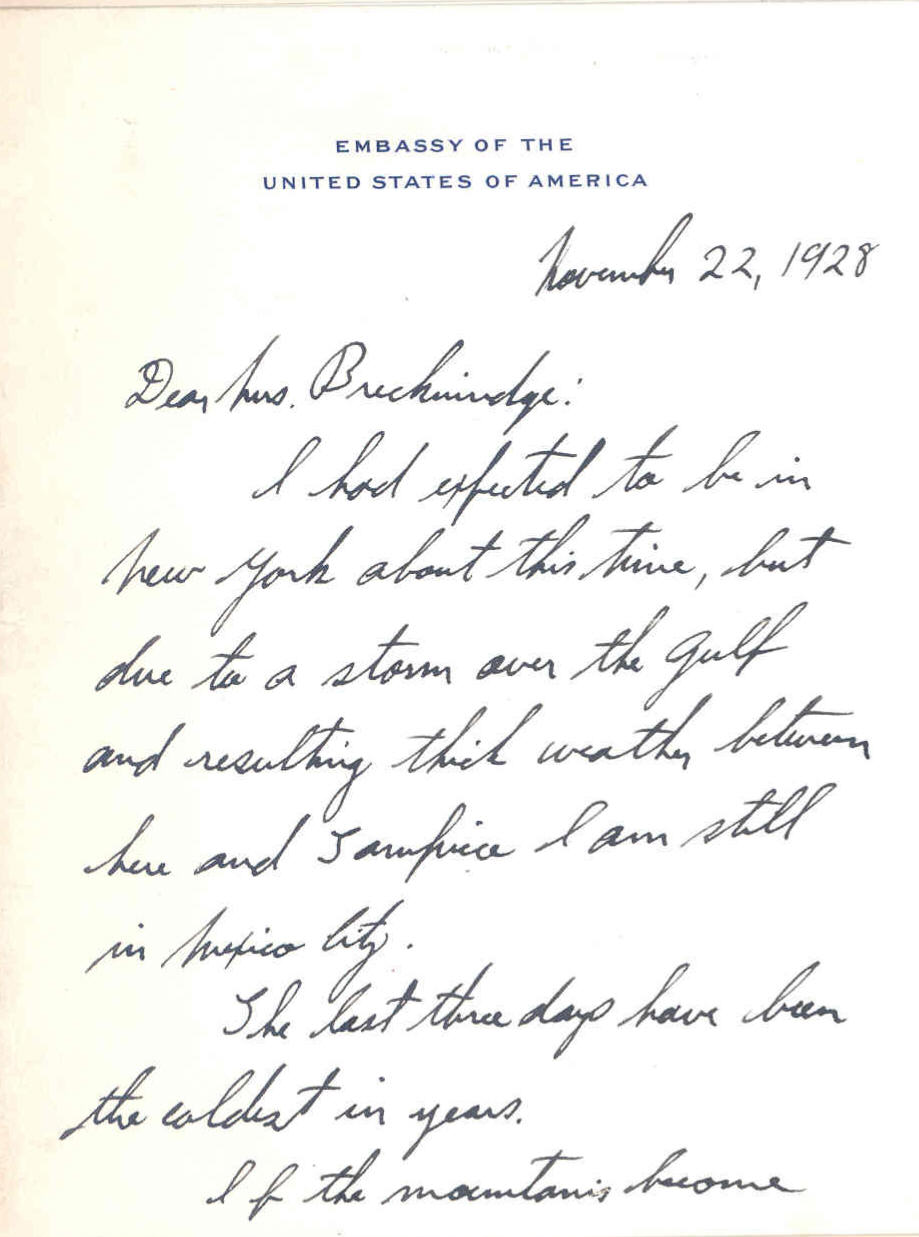 EMBASSY OF THE
UNITED STATES OF AMERICA
November 22, 1928
Dear Mrs. Breckinridge:
I had expected to be in
New York about this time, but
due to a storm over the gulf
and resulting thick weather between
here and Tampico I am still
in Mexico City.
The last three days have been
the coldest in years.
If the mountains become